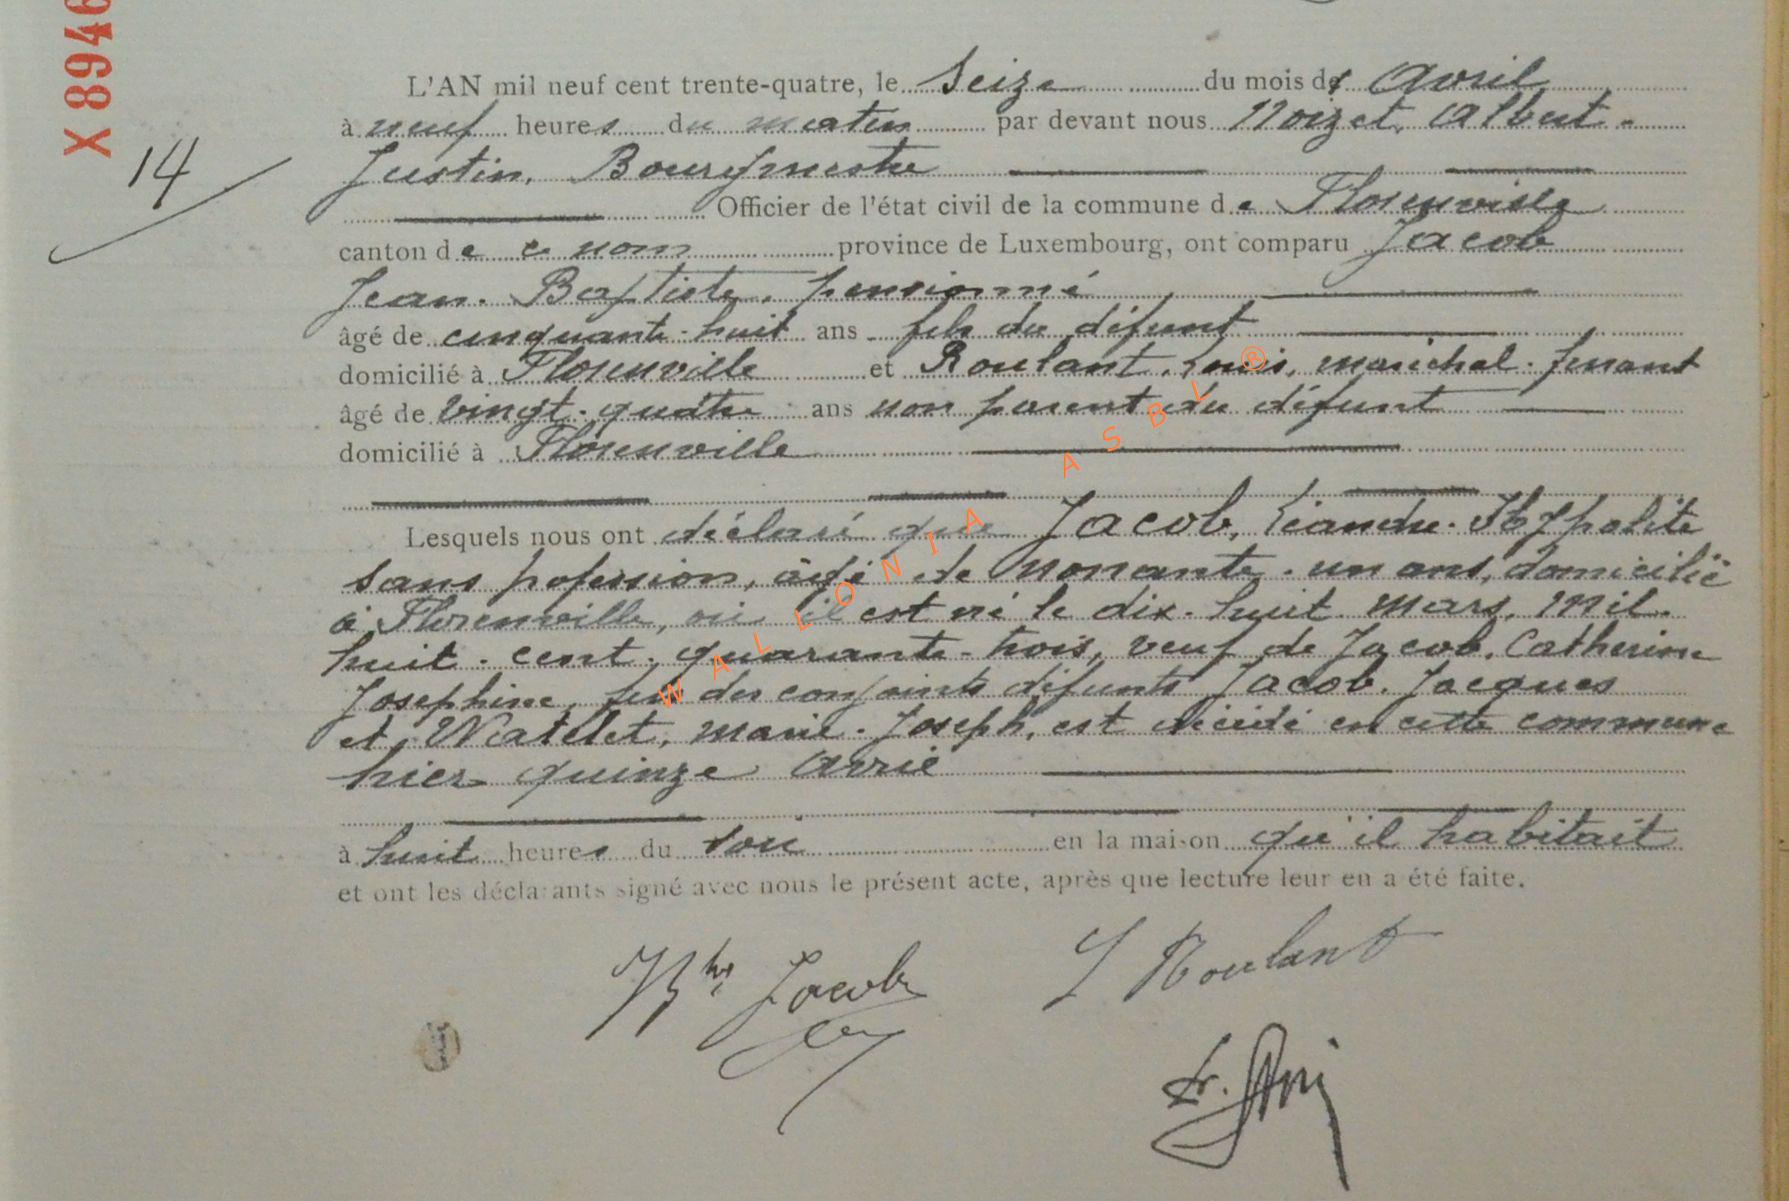 X 8946
14
L'AN mil neuf cent trente-quatre, le seize du mois d' Avril
à neuf heures du matin par devant nous Noizet, Albert-
Justin, Bourgmestre
Officier de l'état civil de la commune de Florenville
canton de ce nom province de Luxembourg, ont comparu Jacob
Jean-Baptiste, pensionné
âgé de cinquante-huit ans fils du défunt
domicilié à Florenville et Roulant, Louis, maréchal-ferrant
âgé de vingt-quatre ans non parent du défunt
domicilié à Florenville
Lesquels nous ont déclaré que Jacob, Léandre-Hyppolite
sans pofession, âgé de nonante-un ans, domicilié
à Florenville, où il est né le dix-huit mars, mil-
huit-cent-quarante-trois, veuf de Jacob, Catherine
Josephine, fils des conjoints défunts Jacob, Jacques
et Watelet, Marie-Joseph, est décédé en cette commune
hier quinze avril
à huit heures du soir en la maison qu'il habitait
et ont les déclarants signé avec nous le présent acte, après que lecture leur en a été faite.
Jacob L Roulant
WALLONIA ASBL ®